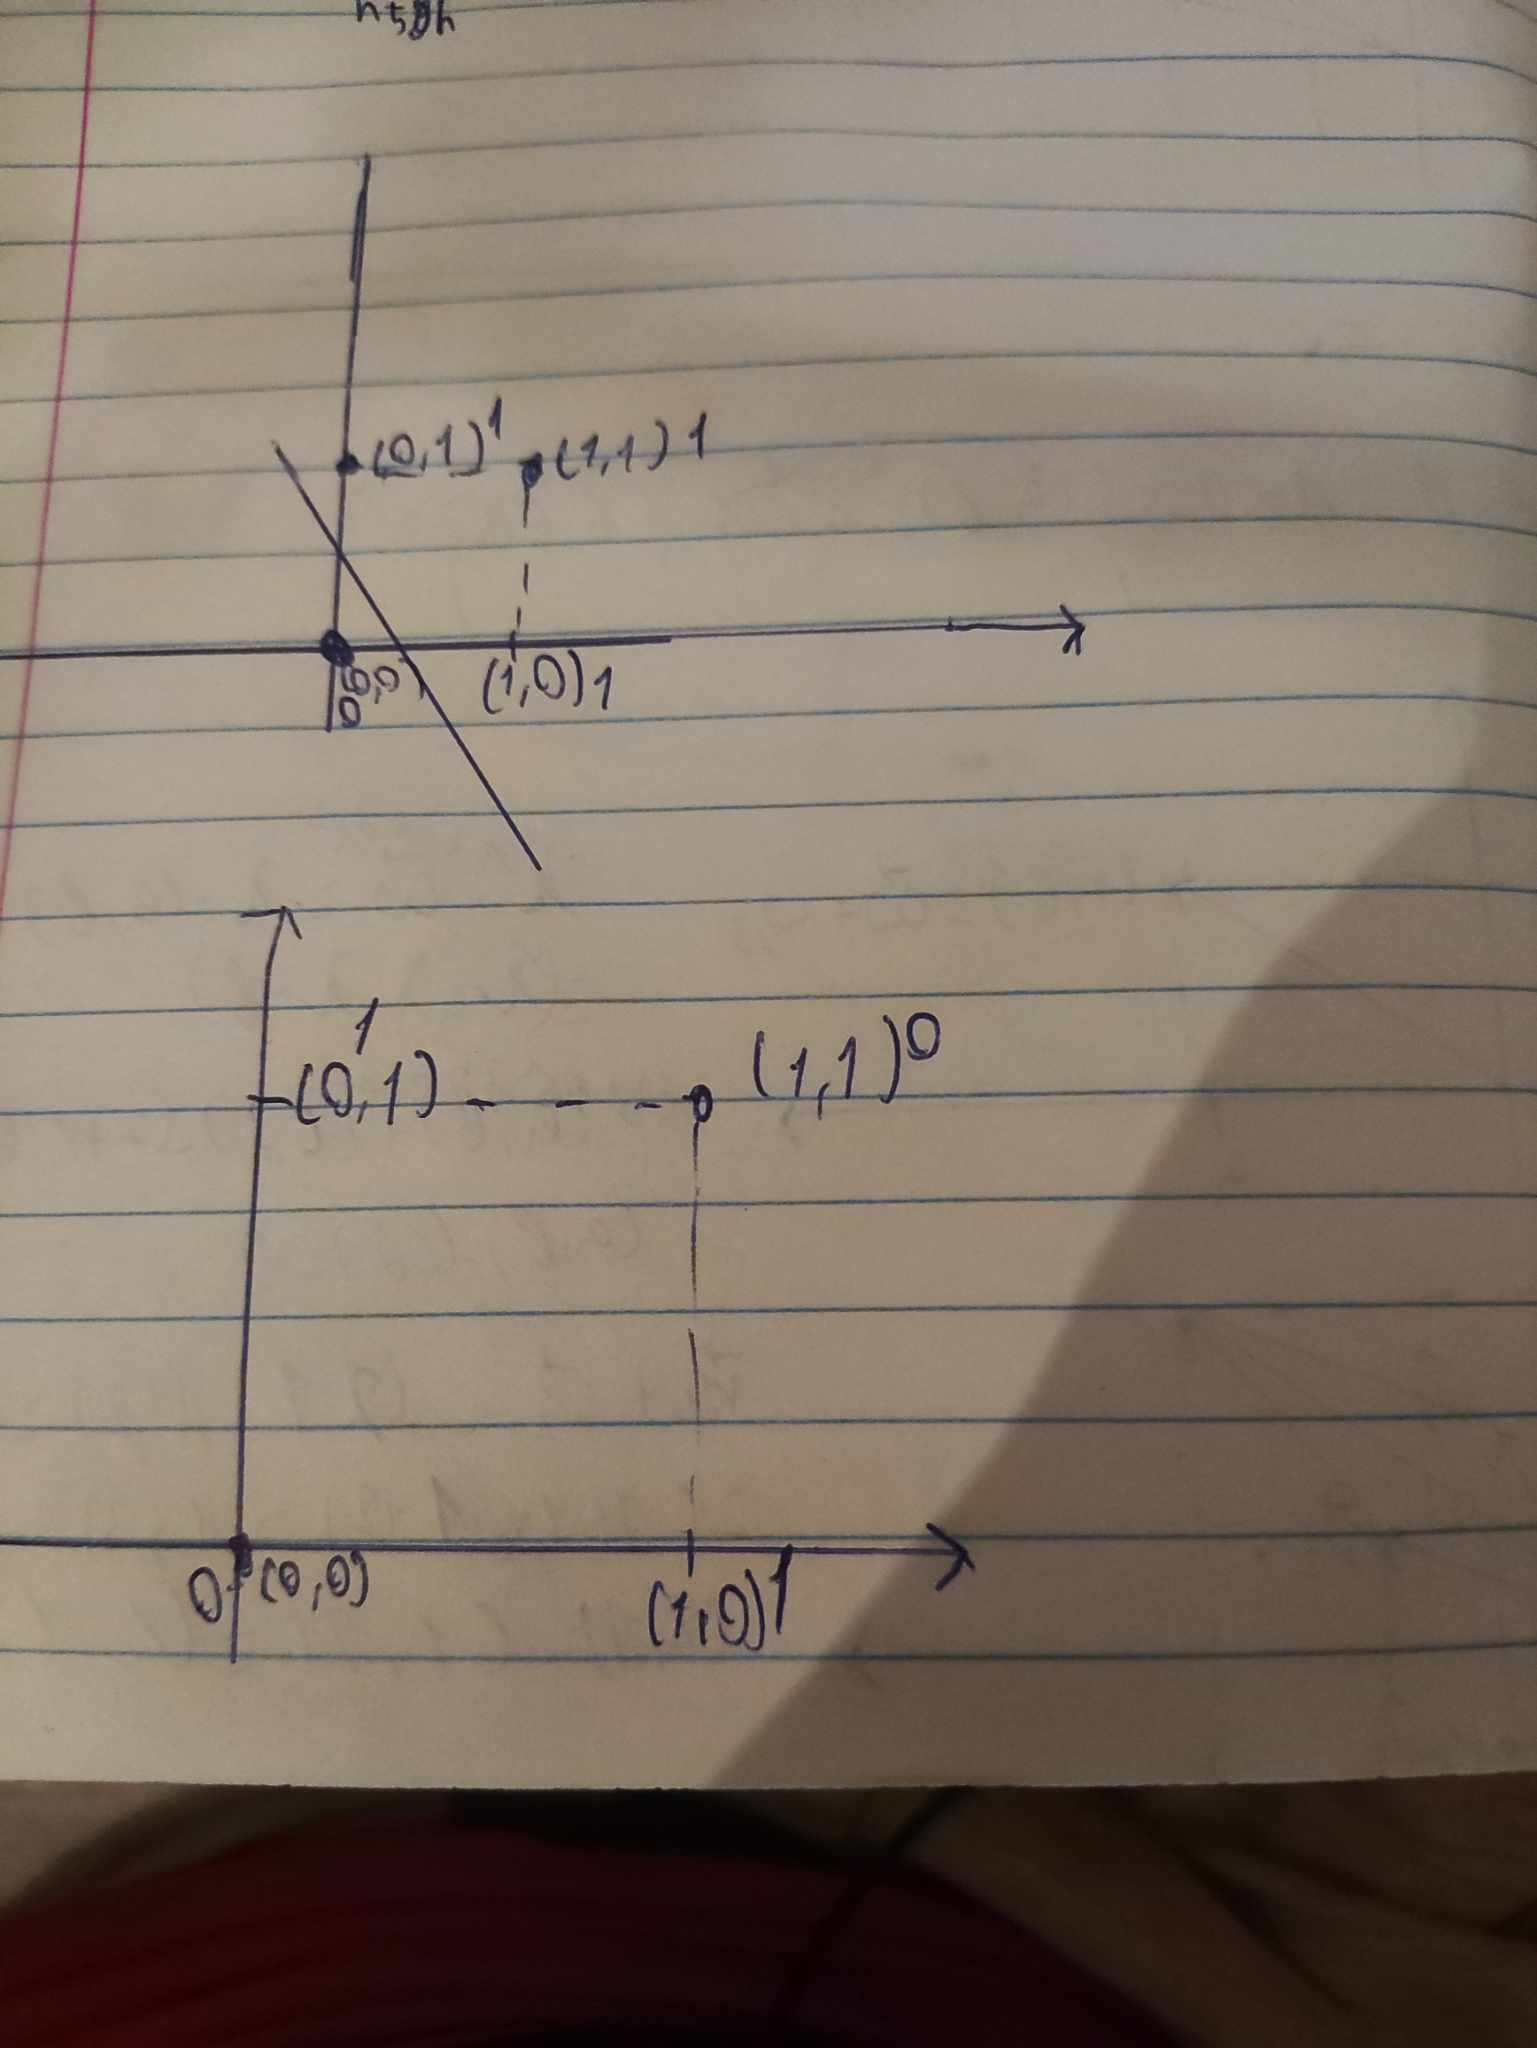 (0,1) 1 (1,1) 1
0 (0,0) (1,0) 1
1
(0,1) (1,1) 0
0 (0,0) (1,0) 1